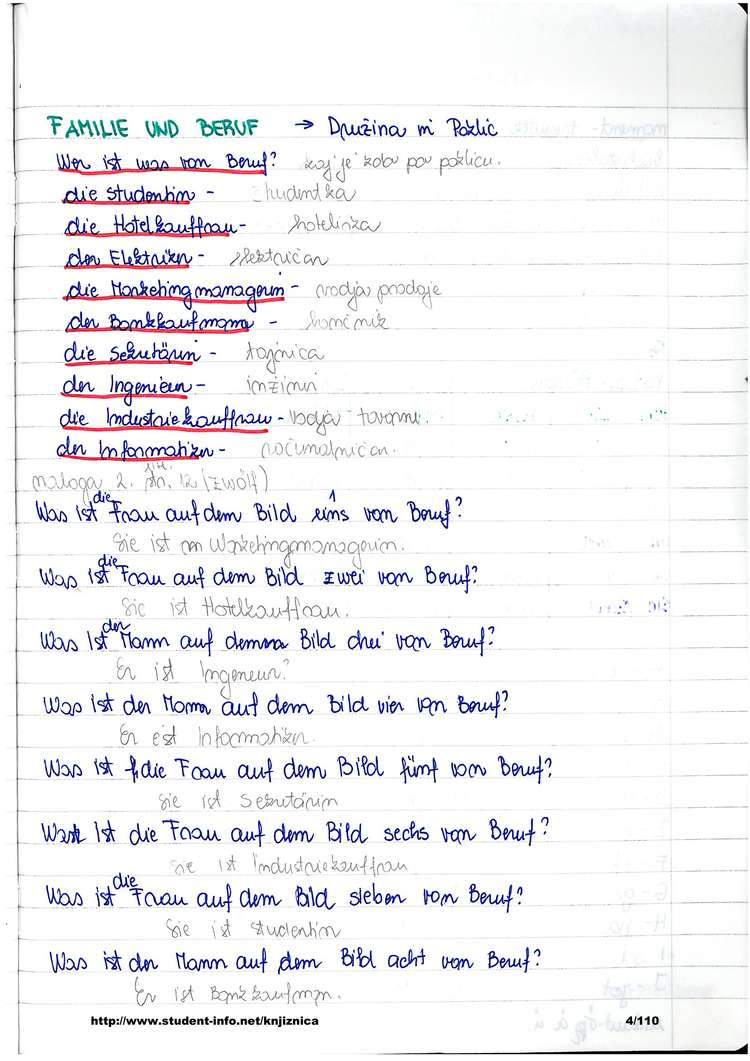 FAMILIE UND BERUF → Družina in Poklic
Wer ist was von Beruf? kaj je kdo po poklicu.
die Studentin - študentka
die Hotelkauffrau - hotelirka
der Elektriker - električar
die Marketingmanagerin - vodja prodaje
der Bankkaufmann - bančnik
die Sekretärin - tajnica
der Ingenieur - inžinir
die Industriekauffrau - vodja tovarne.
der Informatiker - računalničar.
naloga 2. str. 12 (zwölf)
Was ist die Frau auf dem Bild eins von Beruf? 1
Sie ist Marketingmanagerin.
Was ist die Frau auf dem Bild zwei von Beruf?
Sie ist Hotelkauffrau.
Was ist der Mann auf dem Bild drei von Beruf?
Er ist Ingeneur.
Was ist der Mann auf dem Bild vier von Beruf?
Er ist Informatiker.
Was ist die Frau auf dem Bild fünf von Beruf?
Sie ist Sekretärin
Was ist die Frau auf dem Bild sechs von Beruf?
Sie ist Industriekauffrau
Was ist die Frau auf dem Bild sieben von Beruf?
Sie ist Studentin
Was ist der Mann auf dem Bild acht von Beruf?
Er ist Bankkaufman.
http://www.student-info.net/knjiznica 4/110